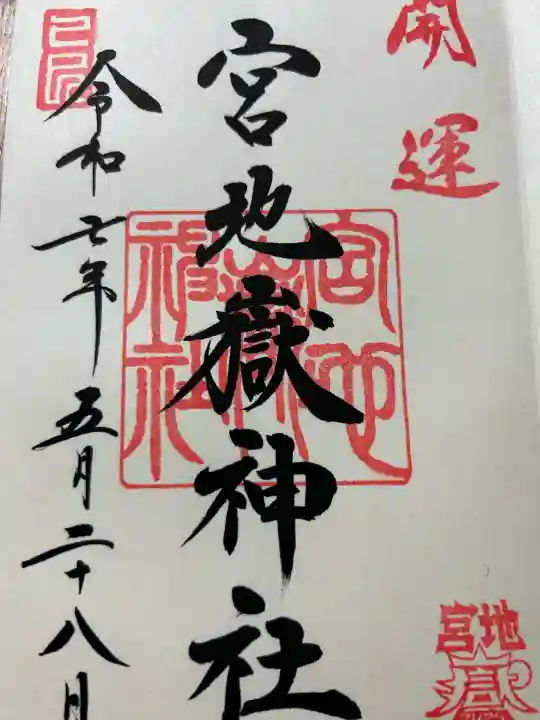 開運
宮地嶽神社
令和七年五月二十八日
己巳
宮地嶽神社
宮地
嶽